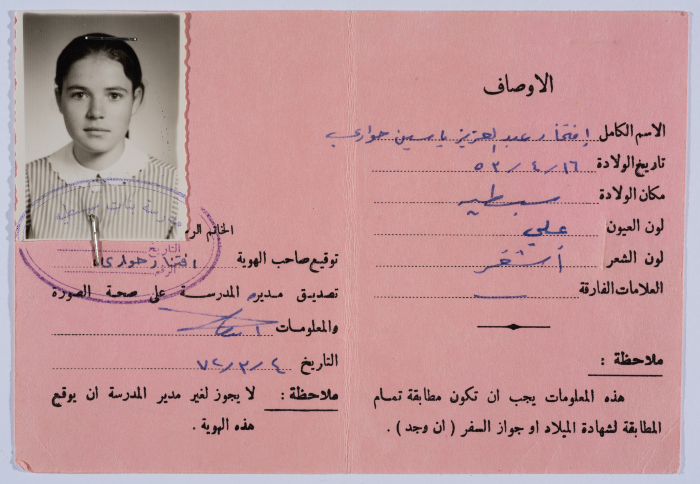 الاوصاف
الاسم الكامل إفتخار عبد العزيز ياسين حواري
تاريخ الولادة ١٦/٤/٥٢
مكان الولادة سبسطيه
لون العيون عسلي
لون الشعر أشقر
العلامات الفارقة —
ملاحظة :
هذه المعلومات يجب ان تكون مطابقة تمام
المطابقة لشهادة الميلاد او جواز السفر ( ان وجد ) .
مدرسة بنات سبسطية
الخاتم
التاريخ
الرقم
توقيع صاحب الهوية افتخار حواري
تصديق مديره المدرسة على صحة الصورة
والمعلومات
التاريخ ٧٢/٣/٤
ملاحظة : لا يجوز لغير مدير المدرسة ان يوقع
هذه الهوية .